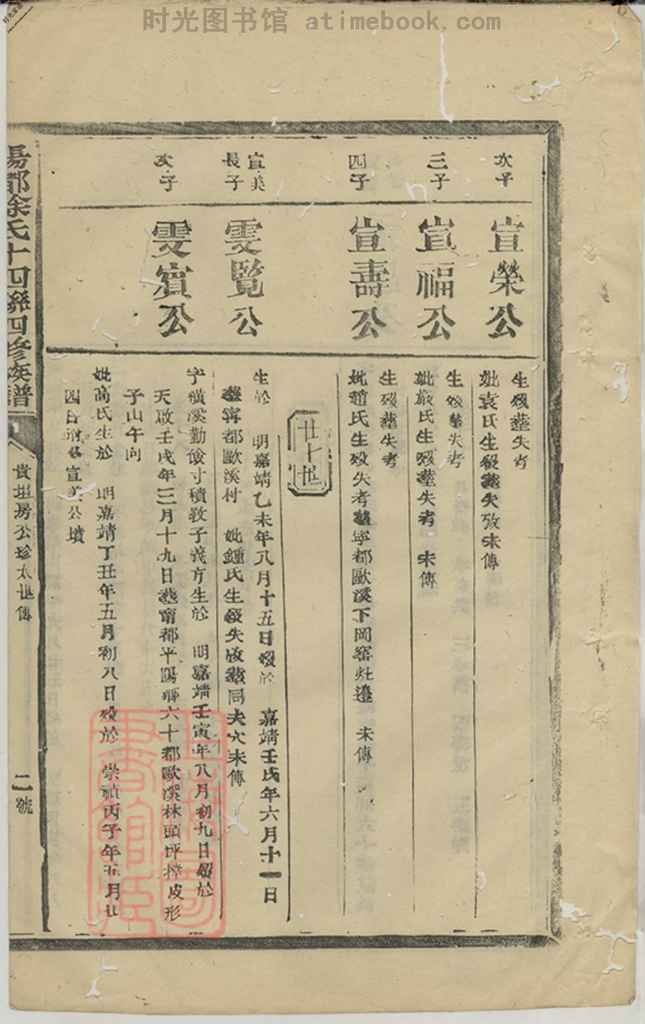 时光图书馆 atimebook.com
次子
宣榮公
生殁塟失考
妣袁氏生殁塟失攷未傳
三子
宣福公
生殁塟失考
妣嚴氏生殁塟失考 未傳
四子
宣壽公
生殁塟失考
妣趙氏生殁失考塟寧都歐溪下岡窑灶邉 未傳
廿七世
宣美長子
雯覽公
生於 明嘉靖乙未年八月十五日殁於 嘉靖壬戌年六月十一日
塟寧都歐溪村 妣鍾氏生殁失攷塟同夫穴未傳
次子
雯賓公
字橫溪勤儉寸積敎子義方生於 明嘉靖壬寅年八月初九日殁於
天啟壬戌年三月十九日塟甯都平陽鄉六十都歐溪林頭坪 皮形
子山午向
妣高氏生於 明嘉靖丁丑年五月初八日殁於 崇禎丙子年五月廿
四日 宣美公墳
陽都徐氏十四聯四修族譜
貴垣房公珍太世傳
二號